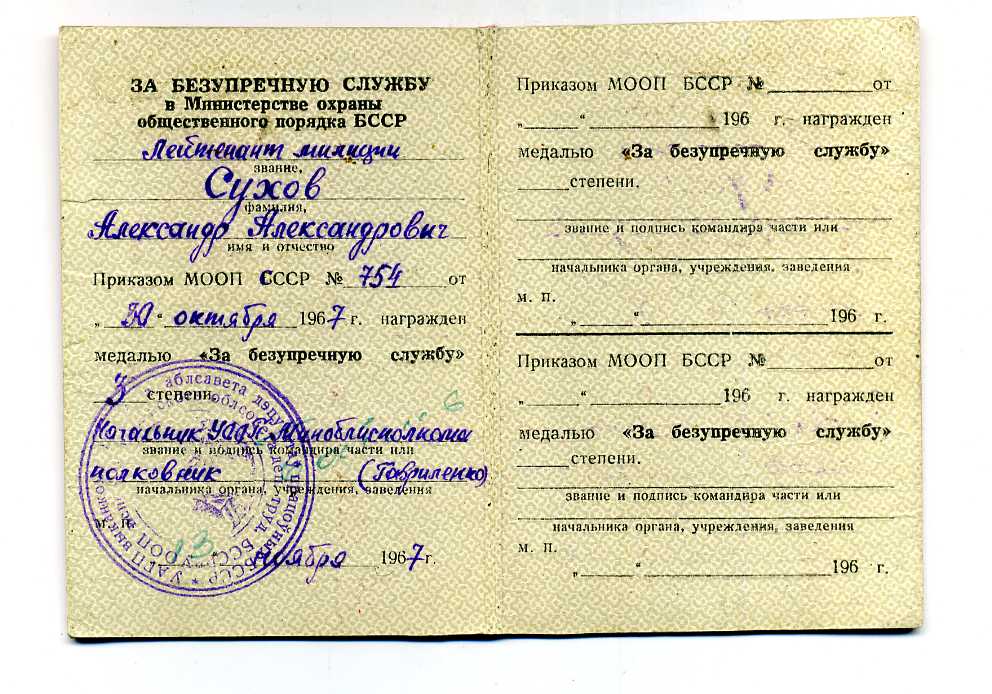 ЗА БЕЗУПРЕЧНУЮ СЛУЖБУ
в Министерстве охраны
общественного порядка БССР
Лейтенант милиции
звание,
Сухов
фамилия,
Александр Александрович
имя и отчество
Приказом МООП СССР № 754 от
„30“ октября 1967 г. награжден
медалью «За безупречную службу»
3 степени.
Начальник УООП Миноблисполкома
звание и подпись командира части или
полковник (Гавриленко)
начальника органа, учреждения, заведения
м. п.
13 ноября 1967 г.
Приказом МООП БССР № от
„ “ 196 г. награжден
медалью «За безупречную службу»
степени.
звание и подпись командира части или
начальника органа, учреждения, заведения
м. п.
„ “ 196 г.
Приказом МООП БССР № от
„ “ 196 г. награжден
медалью «За безупречную службу»
степени.
звание и подпись командира части или
начальника органа, учреждения, заведения
м. п.
„ “ 196 г.